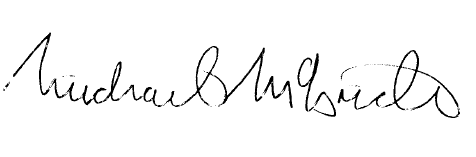 Michael McBride